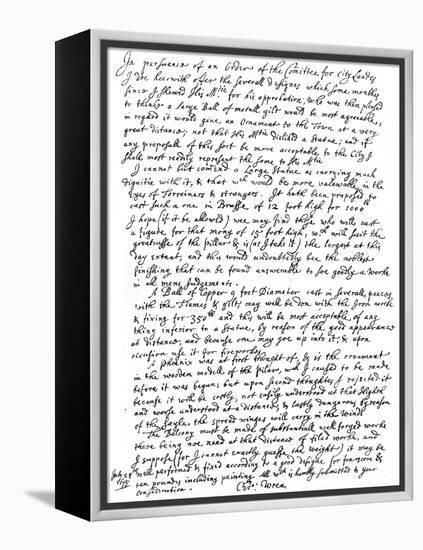 In persuance of an Order of the Comittee for City Landes
I doe heerwith offer the severall designes which some monthes
since I shewed His Mtie for his approbation, who was then pleased
to thinke a large Ball of metall gilt would be most agreeable,
in regard it would give an Ornament to the Town at a very
great distance; not that His Mtie disliked a Statue; and if
any proposall of this sort be more acceptable to the City I
shall most readily represent the same to His Mtie
I cannot but comend a Large Statue as carrying much
dignitie with it, & that wch would be more valewable in the
Eyes of Forreiners & strangers. It hath been proposed to
cast such a one in Brasse of 12 foot high for 1000lb
I hope (if it be allowed) wee may find those who will cast
a figure for that mony of 15 foot high, wch will suit the
greatnesse of the pillar & is (as I take it) the largest at this
day extant, and this would undoubtedly bee the noblest
finishing that can be found answerable to soe goodly a worke
in all mens Judgements.
A Ball of Copper 9 foot Diameter cast in severall peeces
with the Flames & gilt, may well be don with the Iron worke
& fixing for 350lb and this will be most acceptable of any
thing inferior to a Statue, by reason of the good appearance
at distance, and because one may goe up into it, & upon
occasion use it for fireworkes.
A Phoenix was at first thought of, & is the ornament
in the wooden modell of the pilar, wch I caused to be made
before it was begun; but upon second thoughtes I rejected it
because it will be costly, not easily understood at that Highth
and worse understood at a distance, & lastly dangerous by reason
of the sayle the spread winges will carry in the winde
The Balcony must be made of substantiall well forged worke
there being noe need at that distance of filed worke, and
I suppose (for I cannot exactly guesse the weight) it may be
well performed & fixed according to a good designe for fourscore &
ten poundes including painting. All wch is humbly submitted to your
consideration.
July 28
Chr: Wren